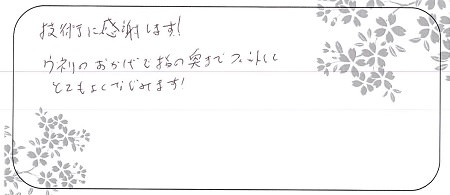 技術に感謝します!
ウネリのおかげで指の奥までフィットして
とてもよくなじみます!